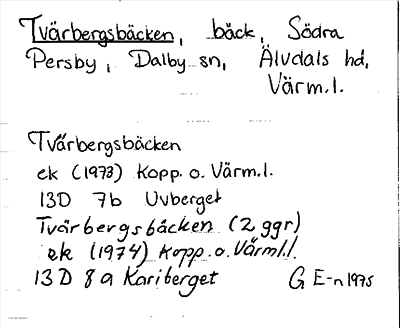 Tvärbergsbäcken, bäck, Södra
Persby, Dalby sn, Älvdals hd,
Värm.l.
Tvärbergsbäcken
ek (1973) Kopp. o. Värm.l.
13D 7b Uvberget
Tvärbergsbäcken (2 ggr)
ek (1974) Kopp. o. Värml.l.
13D 8a Kariberget G E-n 1975